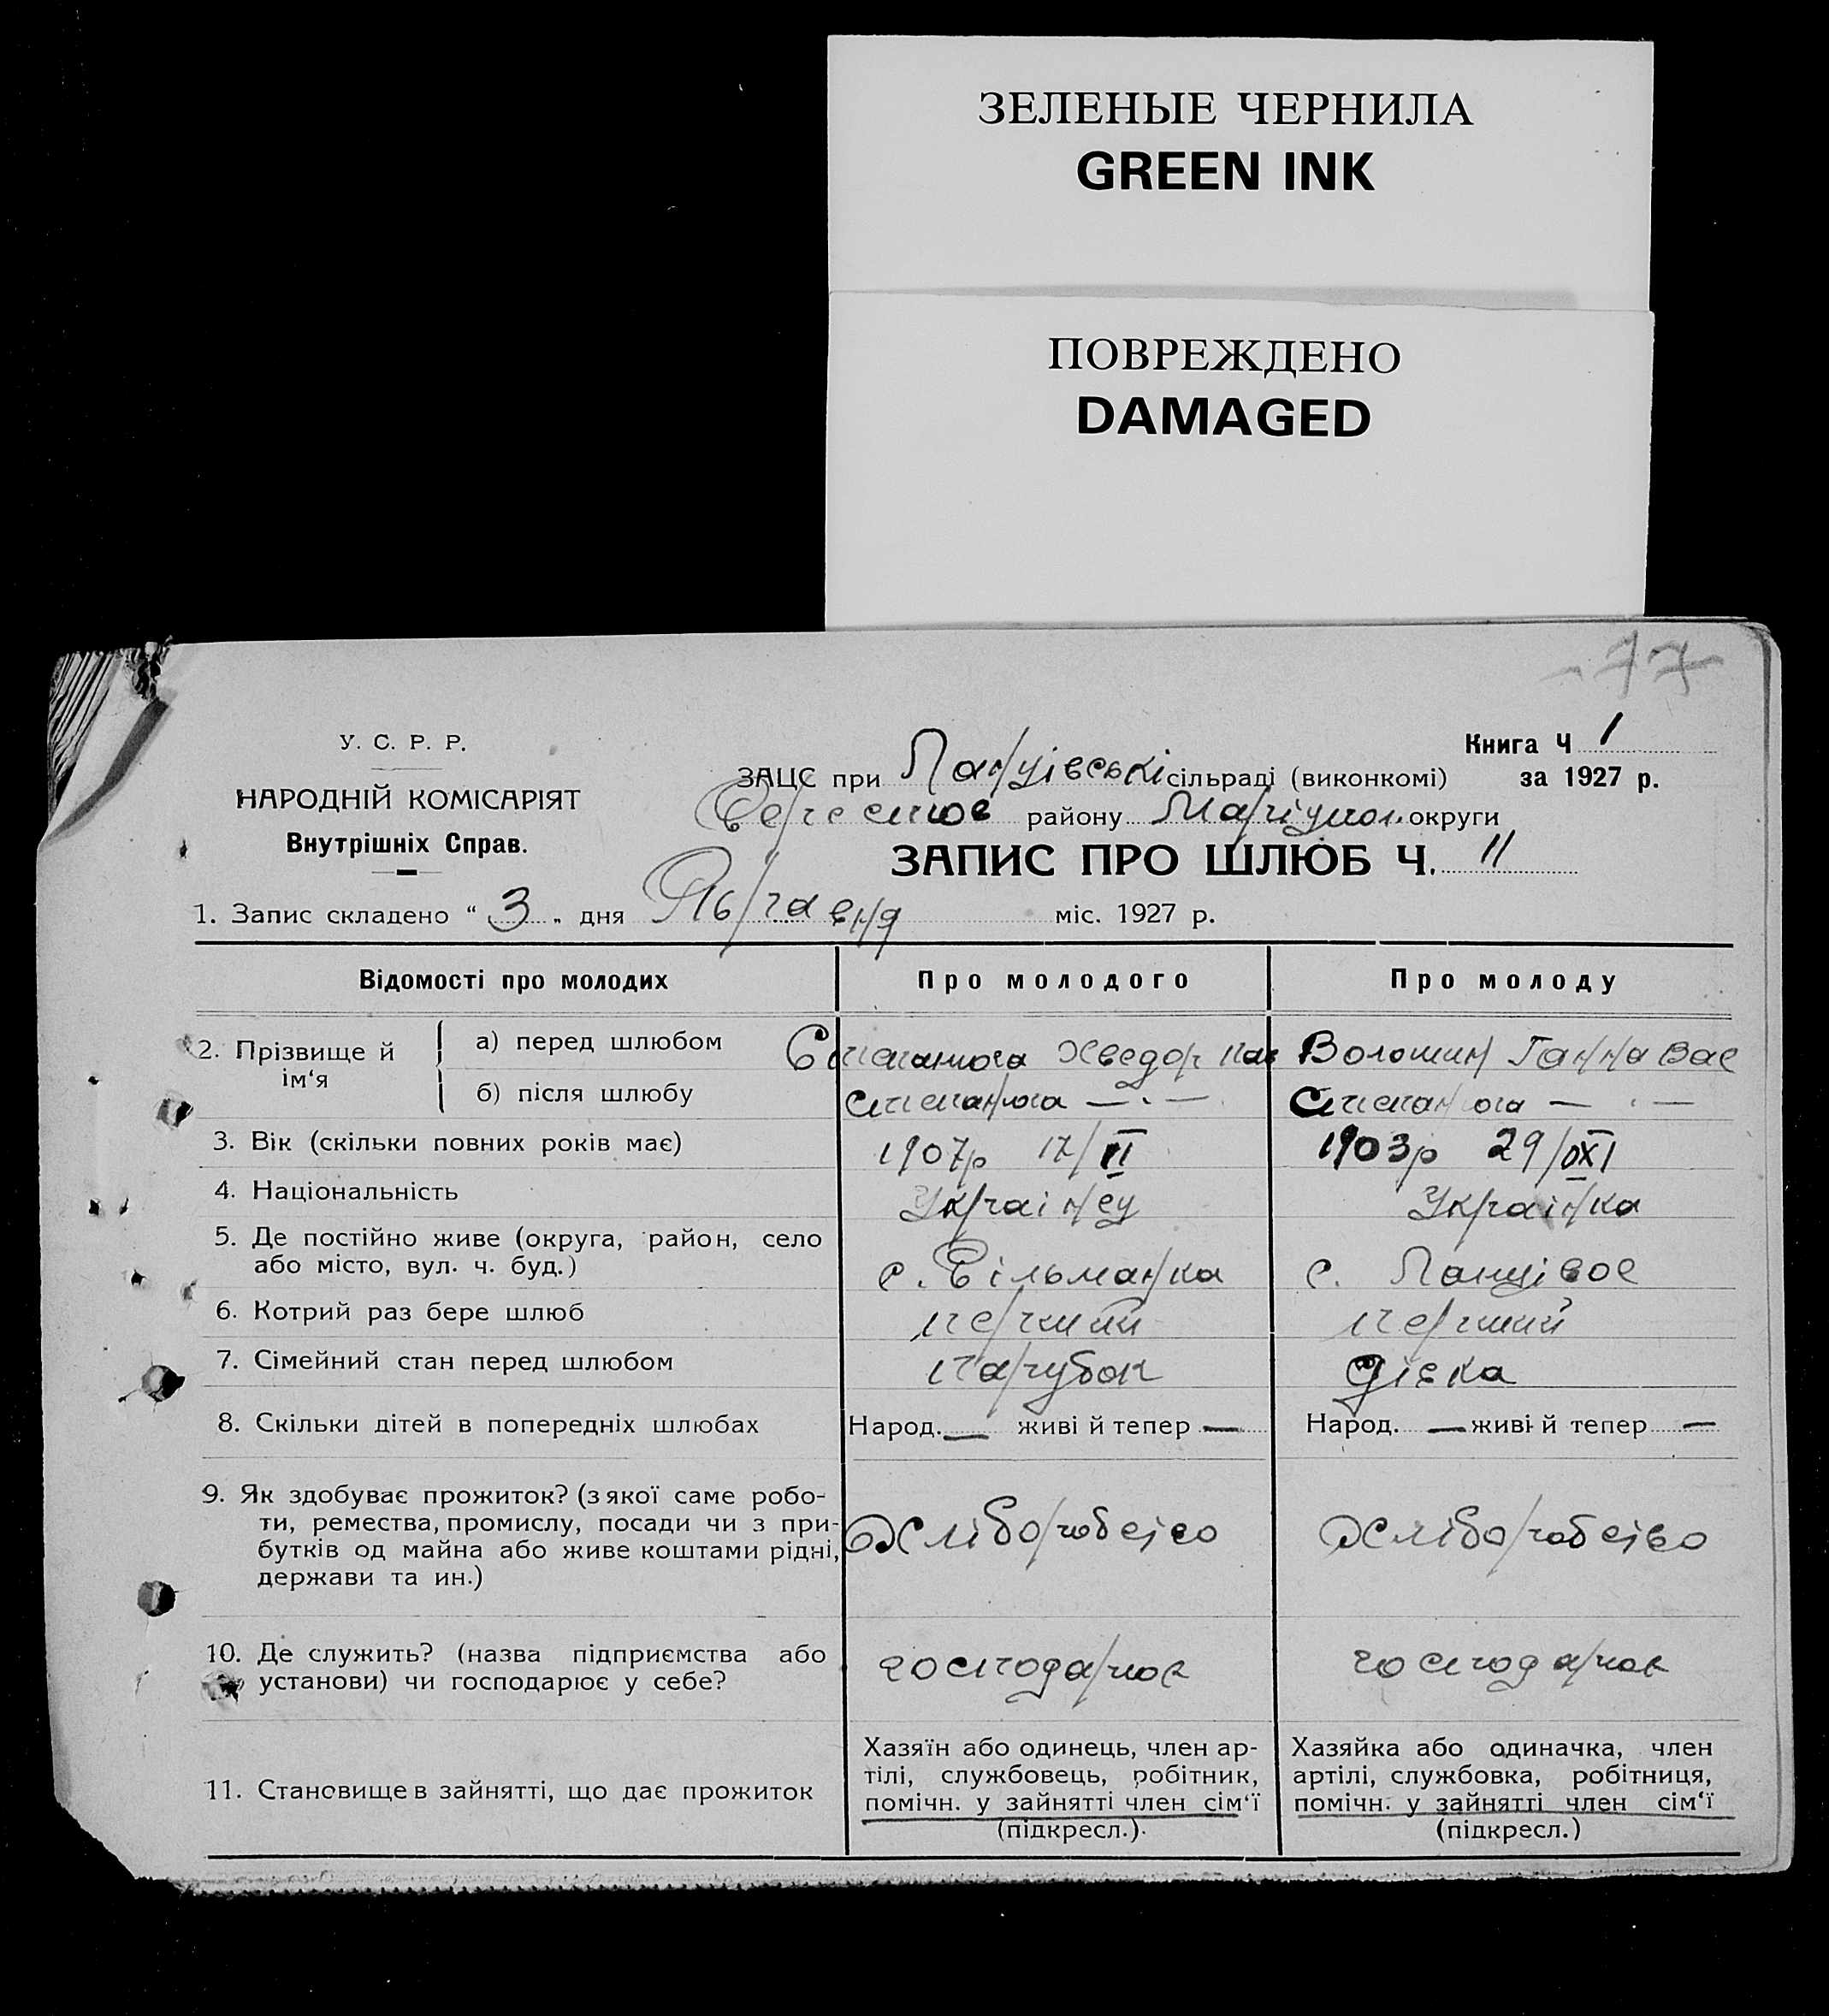 ЗЕЛЕНЫЕ ЧЕРНИЛА
GREEN INK
ПОВРЕЖДЕНО
DAMAGED
77
У. С. Р. Р.
НАРОДНІЙ КОМІСАРІЯТ
Внутрішніх Справ.
Книга Ч 1
ЗАЦС при сільраді (виконкомі) за 1927 р.
району Маріупол. округи
ЗАПИС ПРО ШЛЮБ Ч. 11
1. Запис складено “ 3 „ дня міс. 1927 р.
Відомості про молодих Про молодого Про молоду
2. Прізвище й ім‘я
а) перед шлюбом Хведор Волошин Ганна Вас
б) після шлюбу — · — — · —
3. Вік (скільки повних років має) 1907р 17/ 1903р 29/
4. Національність Українец Українка
5. Де постійно живе (округа, район, село
або місто, вул. ч. буд.) с. Вільманка с.
6. Котрий раз бере шлюб перший перший
7. Сімейний стан перед шлюбом парубок дівка
8. Скільки дітей в попередніх шлюбах Народ. — живі й тепер — Народ. — живі й тепер —
9. Як здобуває прожиток? (з якої саме робо-
ти, ремества, промислу, посади чи з при-
бутків од майна або живе коштами рідні,
держави та ин.)
Хліборобство Хліборобство
10. Де служить? (назва підприємства або
установи) чи господарює у себе?
господарює господарює
11. Становище в зайнятті, що дає прожиток
Хазяїн або одинець, член ар-
тілі, службовець, робітник,
помічн. у зайнятті член сім‘ї
(підкресл.).
Хазяйка або одиначка, член
артілі, службовка, робітниця,
помічн. у зайнятті член сім‘ї
(підкресл.)